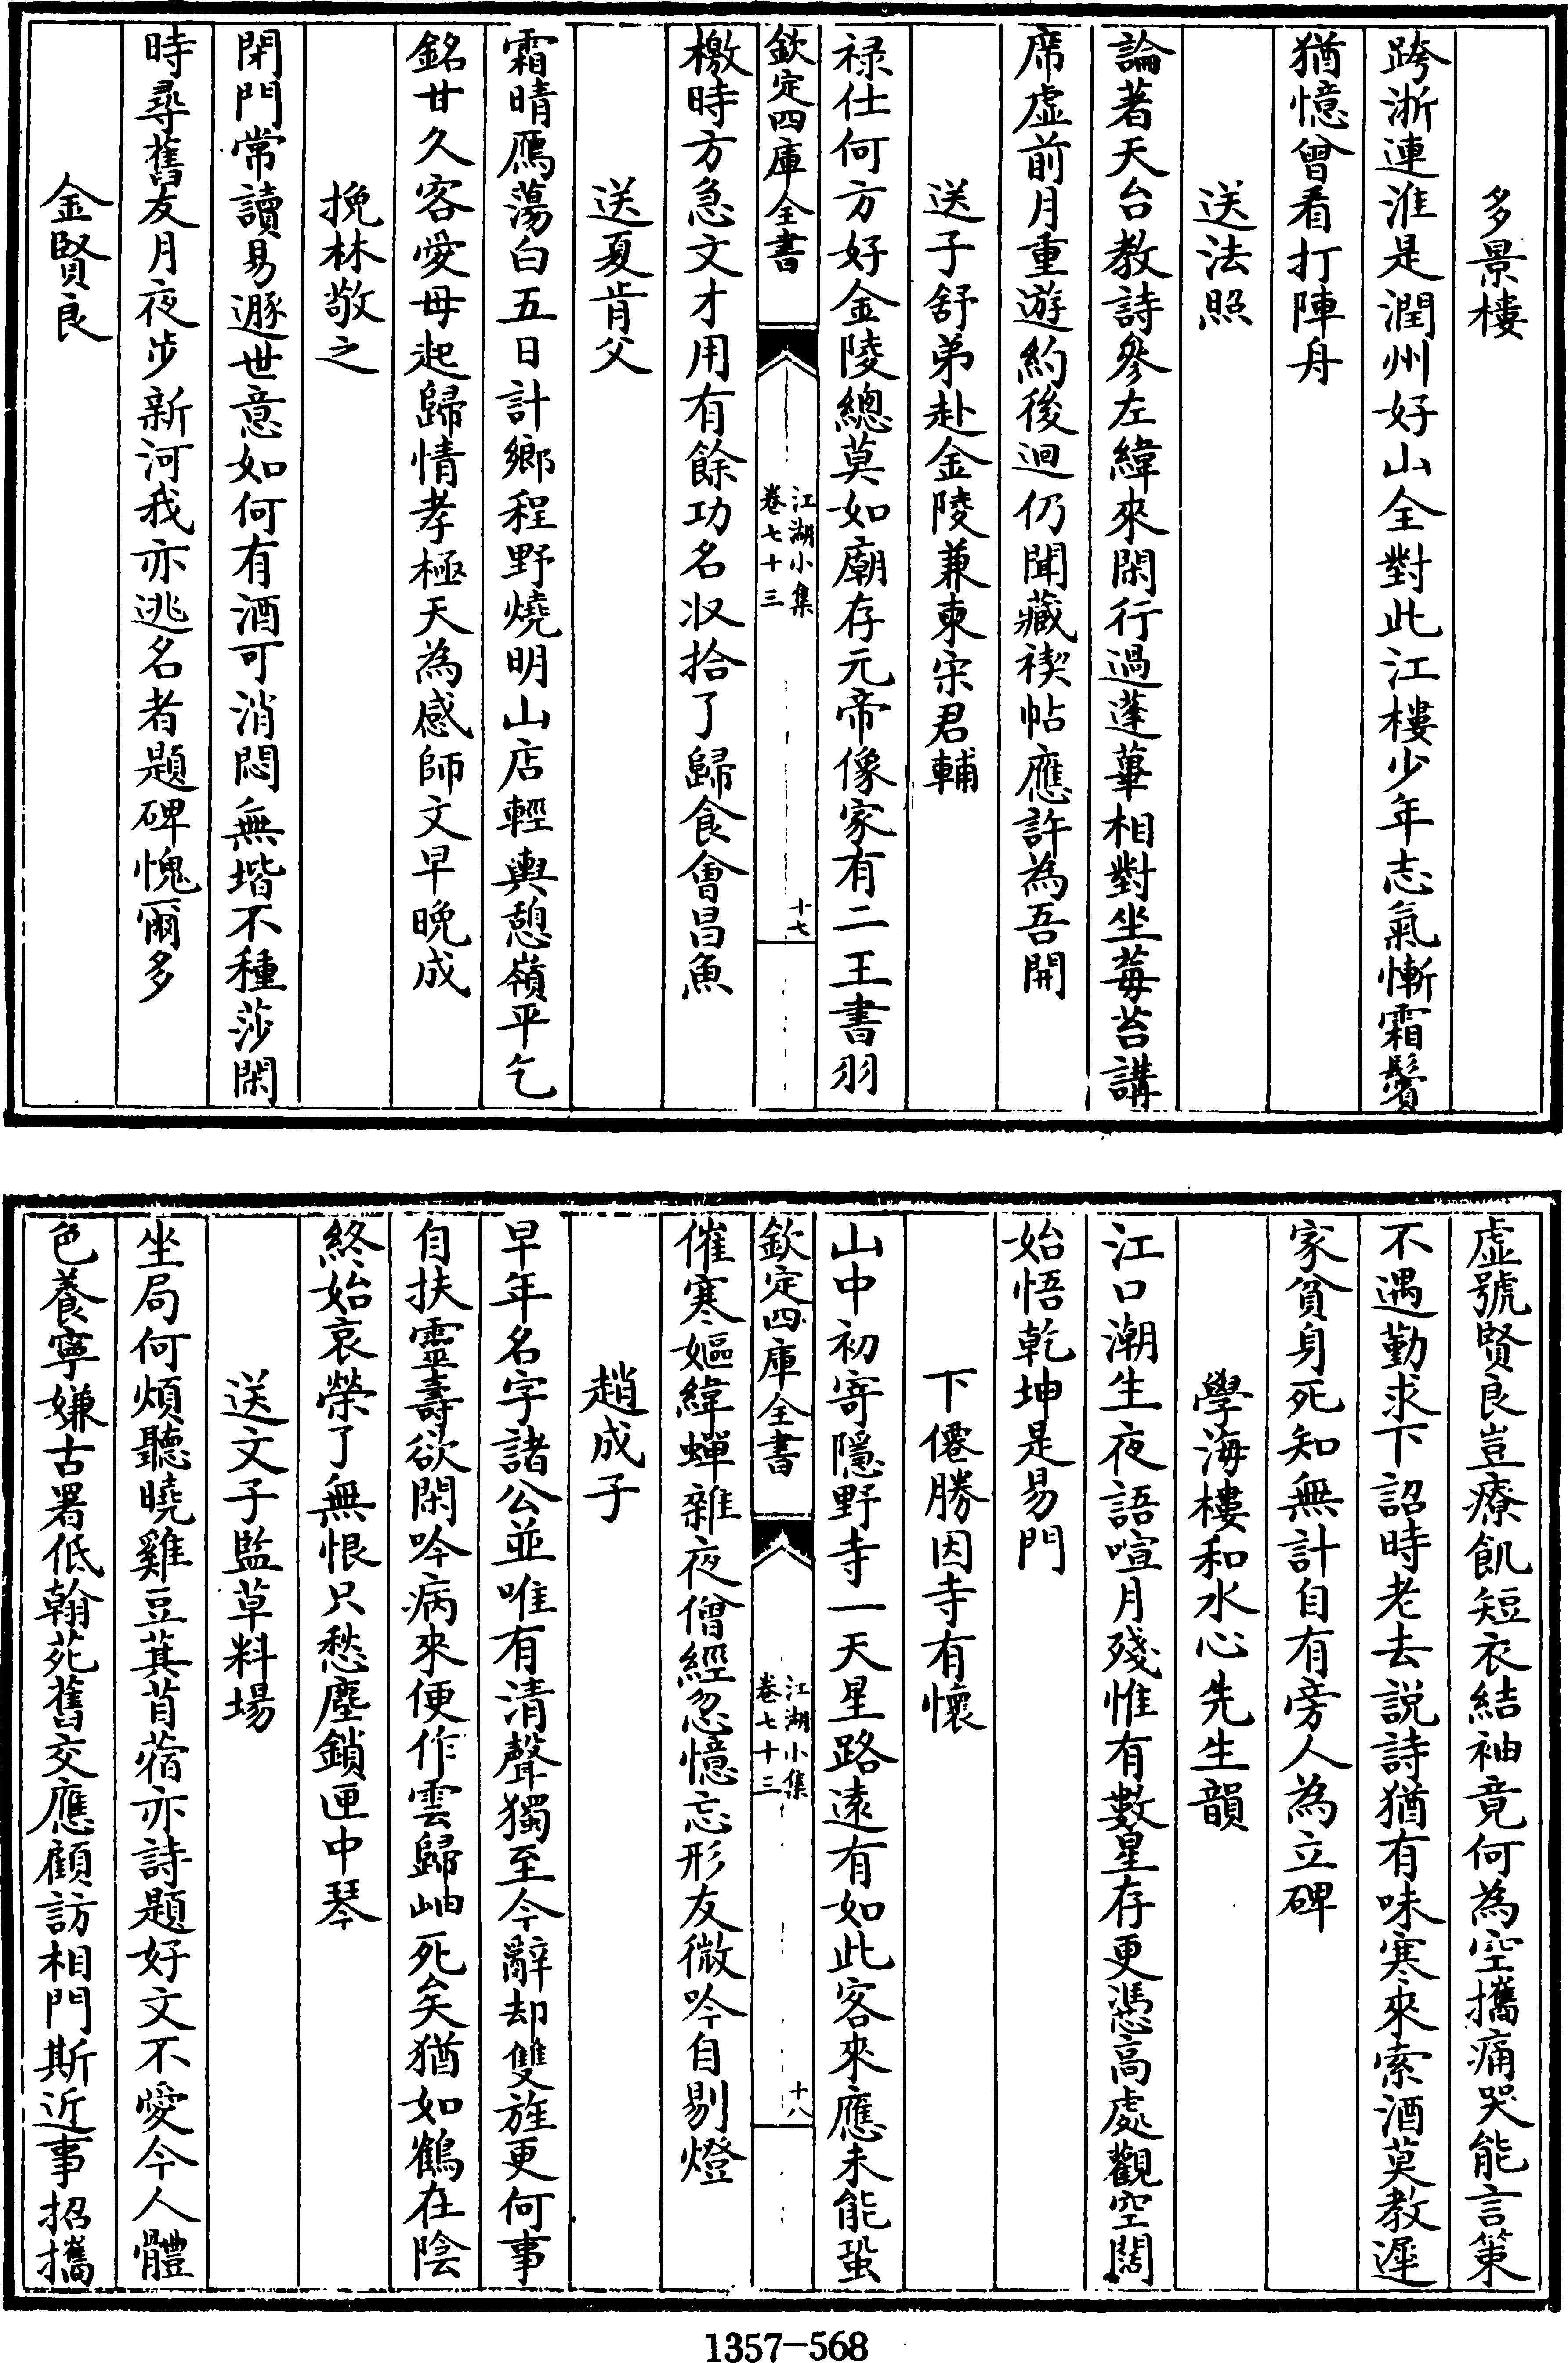 多景樓
跨浙連淮是潤州好山全對此江樓少年志氣慚霜鬢
猶憶曾看打陣舟
送法照
論著天台教詩參左緯來閑行過蓬蓽相對坐莓苔講
席虛前月重遊約後迴仍聞藏禊帖應許為吾開
送子舒弟赴金陵兼柬宋君輔
禄仕何方好金陵總莫如廟存元帝像家有二王書羽
欽定四庫全書
江湖小集
卷七十三
十七
檄時方急文才用有餘功名収拾了歸食會昌魚
送夏肯父
霜晴鴈蕩白五日計鄉程野燒明山店輕輿憩嶺平乞
銘甘久客愛母起歸情孝極天為感師文早晚成
挽林敬之
閉門常讀易遯世意如何有酒可消悶無堦不種莎閑
時尋舊友月夜步新河我亦逃名者題碑愧爾多
金賢良
虛號賢良豈療飢短衣結袖竟何為空攜痛哭能言策
不遇勤求下詔時老去説詩猶有味寒來索酒莫教遲
家貧身死知無計自有旁人為立碑
學海樓和水心先生韻
江口潮生夜語喧月殘惟有數星存更憑高處觀空闊
始悟乾坤是易門
下僊勝因寺有懷
山中初寄隱野寺一天星路遠有如此客來應未能蛩
欽定四庫全書
江湖小集
卷七十三
十八
催寒嫗緯蟬雜夜僧經忽憶忘形友微吟自剔燈
趙成子
早年名字諸公並唯有清聲獨至今辭却雙旌更何事
自扶靈壽欲閑吟病來便作雲歸岫死矣猶如鶴在陰
終始哀榮了無恨只愁塵鎖匣中琴
送文子監草料場
坐局何煩聽曉雞豆萁苜蓿亦詩題好文不愛今人體
色養寧嫌古署低翰苑舊交應顧訪相門斯近事招攜
1357-568